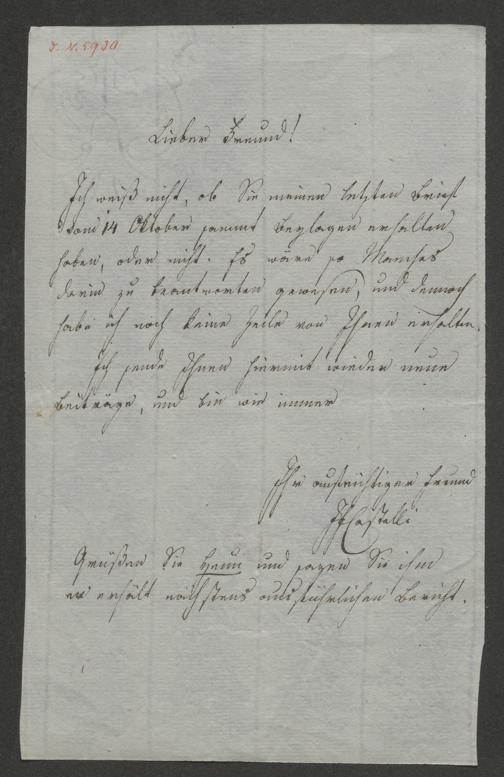 J. N. 5930
Lieber Freund!
Ich weiß nicht, ob Sie meinen letzten Brief
vom 14 Oktober sammt Beylagen erhalten
haben, oder nicht. Es wäre so Manches
darin zu beantworten gewesen, und dennoch
habe ich noch keine Zeile von Ihnen erhalten.
Ich sende Ihnen hiermit wieder neue
Beiträge, und bin wie immer
Ihr aufrichtiger Freund
JFCastelli
Grüßen Sie und sagen Sie ihm
er erhält nächstens ausführlichen Bericht.